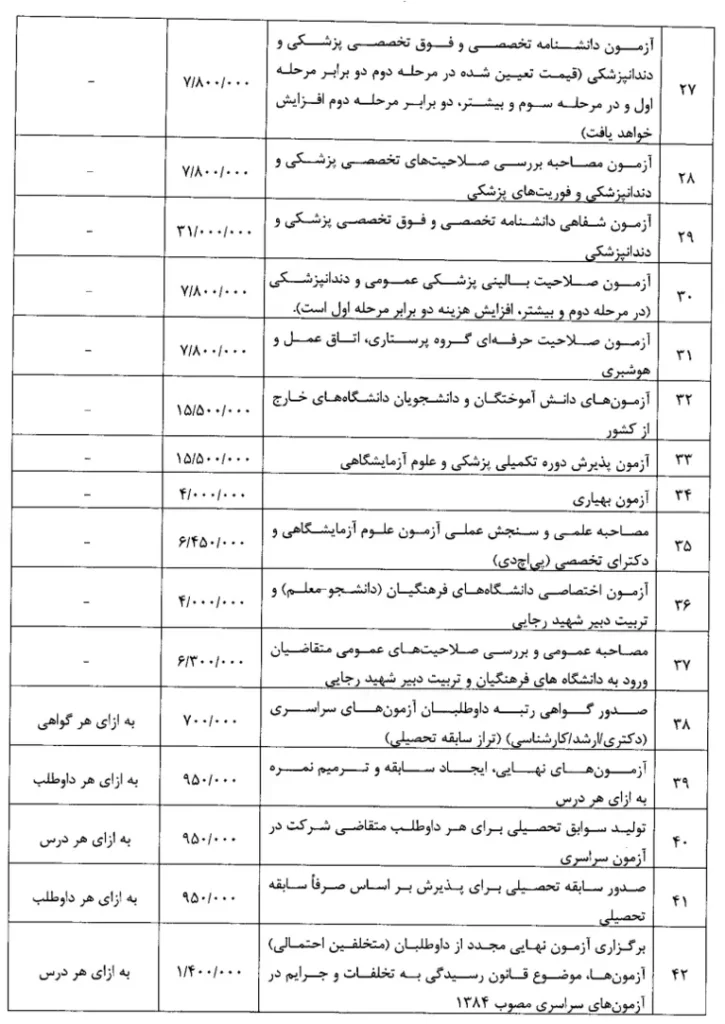 ۲۷
آزمون دانشنامه تخصصی و فوق تخصصی پزشکی و
دندانپزشکی (قیمت تعیین شده در مرحله دوم دو برابر مرحله
اول و در مرحله سوم و بیشتر، دو برابر مرحله دوم افزایش
خواهد یافت)
۷/۸۰۰/۰۰۰
-
۲۸
آزمون مصاحبه بررسی صلاحیت‌های تخصصی پزشکی و
دندانپزشکی و فوریت‌های پزشکی
۷/۸۰۰/۰۰۰
-
۲۹
آزمون شفاهی دانشنامه تخصصی و فوق تخصصی پزشکی و
دندانپزشکی
۳۱/۰۰۰/۰۰۰
-
۳۰
آزمون صلاحیت بالینی پزشکی عمومی و دندانپزشکی
(در مرحله دوم و بیشتر، افزایش هزینه دو برابر مرحله اول است).
۷/۸۰۰/۰۰۰
-
۳۱
آزمون صلاحیت حرفه‌ای گروه پرستاری، اتاق عمل و
هوشبری
۷/۸۰۰/۰۰۰
-
۳۲
آزمون‌های دانش آموختگان و دانشجویان دانشگاه‌های خارج
از کشور
۱۵/۵۰۰/۰۰۰
-
۳۳
آزمون پذیرش دوره تکمیلی پزشکی و علوم آزمایشگاهی
۱۵/۵۰۰/۰۰۰
-
۳۴
آزمون بهیاری
۴/۰۰۰/۰۰۰
-
۳۵
مصاحبه علمی و سنجش عملی آزمون علوم آزمایشگاهی و
دکترای تخصصی (پی‌اچ‌دی)
۶/۴۵۰/۰۰۰
-
۳۶
آزمون اختصاصی دانشگاه‌های فرهنگیان (دانشجو-معلم) و
تربیت دبیر شهید رجایی
۴/۰۰۰/۰۰۰
-
۳۷
مصاحبه عمومی و بررسی صلاحیت‌های عمومی متقاضیان
ورود به دانشگاه های فرهنگیان و تربیت دبیر شهید رجایی
۶/۳۰۰/۰۰۰
-
۳۸
صدور گواهی رتبه داوطلبان آزمون‌های سراسری
(دکتری/ارشد/کارشناسی) (تراز سابقه تحصیلی)
۷۰۰/۰۰۰
به ازای هر گواهی
۳۹
آزمون‌های نهایی، ایجاد سابقه و ترمیم نمره
به ازای هر درس
۹۵۰/۰۰۰
به ازای هر داوطلب
۴۰
تولید سوابق تحصیلی برای هر داوطلب متقاضی شرکت در
آزمون سراسری
۹۵۰/۰۰۰
به ازای هر درس
۴۱
صدور سابقه تحصیلی برای پذیرش بر اساس صرفاً سابقه
تحصیلی
۹۵۰/۰۰۰
به ازای هر داوطلب
۴۲
برگزاری آزمون نهایی مجدد از داوطلبان (متخلفین احتمالی)
آزمون‌ها، موضوع قانون رسیدگی به تخلفات و جرایم در
آزمون‌های سراسری مصوب ۱۳۸۴
۱/۴۰۰/۰۰۰
به ازای هر درس